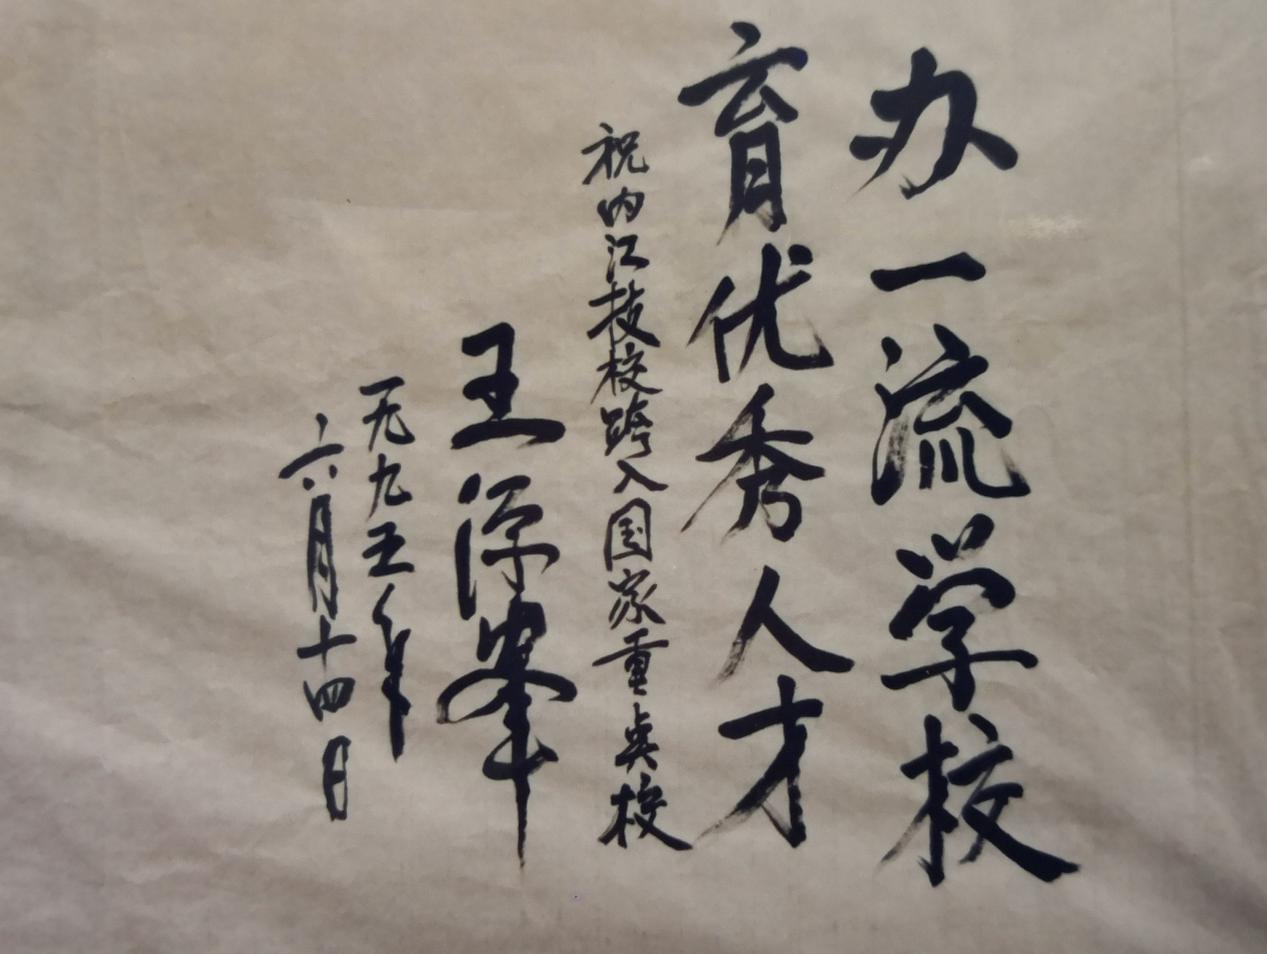 办一流学校
育优秀人才
祝内江技校跨入国家重点校
王源峯
一九九五年
六月十四日